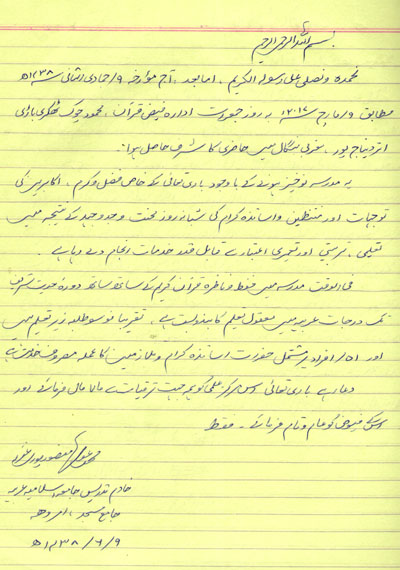 بسم اللہ الرحمن الرحیم
نحمدہ و نصلی علی رسولہ الکریم، اما بعد، آج مورخہ ۹/جمادی الثانی ۱۴۳۸ھ
مطابق ۹/مارچ ۲۰۱۷ء بروز جمعرات ادارہ فیض قرآن، محمود چوک ٹھکری باڑی
اتر دیناج پور، مغربی بنگال میں حاضری کا شرف حاصل ہوا۔
یہ مدرسہ نوخیز ہونے کے باوجود باری تعالی کے خاص فضل و کرم، اکابرین کی
توجہات اور منتظمین و اساتذہ کرام کی شبانہ روز محنت و جدوجہد کے نتیجہ میں
تعلیمی، تربیتی اور تعمیری اعتبار سے قابل قدر خدمات انجام دے رہا ہے۔
فی الوقت مدرسہ میں حفظ و ناظرہ قرآن کریم کے ساتھ ساتھ دورۂ حدیث شریف
تک درجات عربیہ میں معقول تعلیم کا بندوبست ہے۔ تقریبا نو سو طلبہ زیر تعلیم ہیں
اور ۵۱/ افراد پر مشتمل حضرات اساتذہ کرام و ملازمین کا عملہ مصروف خدمت ہے
دعا ہے باری تعالی اس مرکز علمی کو ہمہ جہت ترقیات سے مالا مال فرمائے اور
اس کے فیوض کو عام و تام فرمائے۔ فقط
منصورپوری غفرلہ
خادم تدریس جامعہ اسلامیہ عربیہ
جامع مسجد، امروھہ
۹/۶/۱۴۳۸ھ